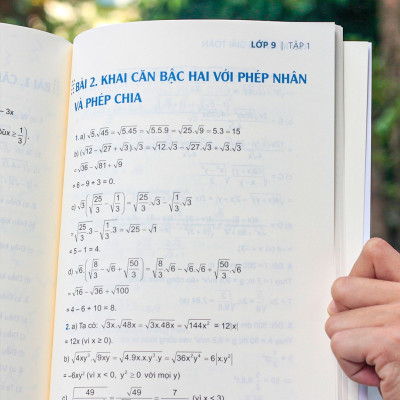 LỚP 9 | TẬP 1
BÀI 2. KHAI CĂN BẬC HAI VỚI PHÉP NHÂN
VÀ PHÉP CHIA
1. a) √5.√45 = √5.45 = √5.5.9 = √25.√9 = 5.3 = 15
b) (√12 − √27 + √3).√3 = √12.3 − √27.3 + √3.√3
= √36 − √81 + √9
= 6 − 9 + 3 = 0.
c) √3(√(25/3) − √(1/3)) = √(25/3).√3 − √(1/3).√3
= √(25/3 .3) − √(1/3 .3) = √25 − √1
= 5 − 1 = 4.
d) √6.(√(8/3) − √6 + √(50/3)) = √(8/3).√6 − √6.√6 + √(50/3).√6
= √16 − √36 + √100
= 4 − 6 + 10 = 8.
2. a) Ta có: √3x.√48x = √3x.48x = √144x² = 12|x|
= 12x (vì x ≥ 0).
b) √4xy².√9xy = √4.9x.x.y².y = √36x²y⁴ = 6|x.y²|
= −6xy² (vì x < 0, y² ≥ 0 với mọi y)
− 3x
x ≥ 1/3
49
√49
7
(vì x < 3)